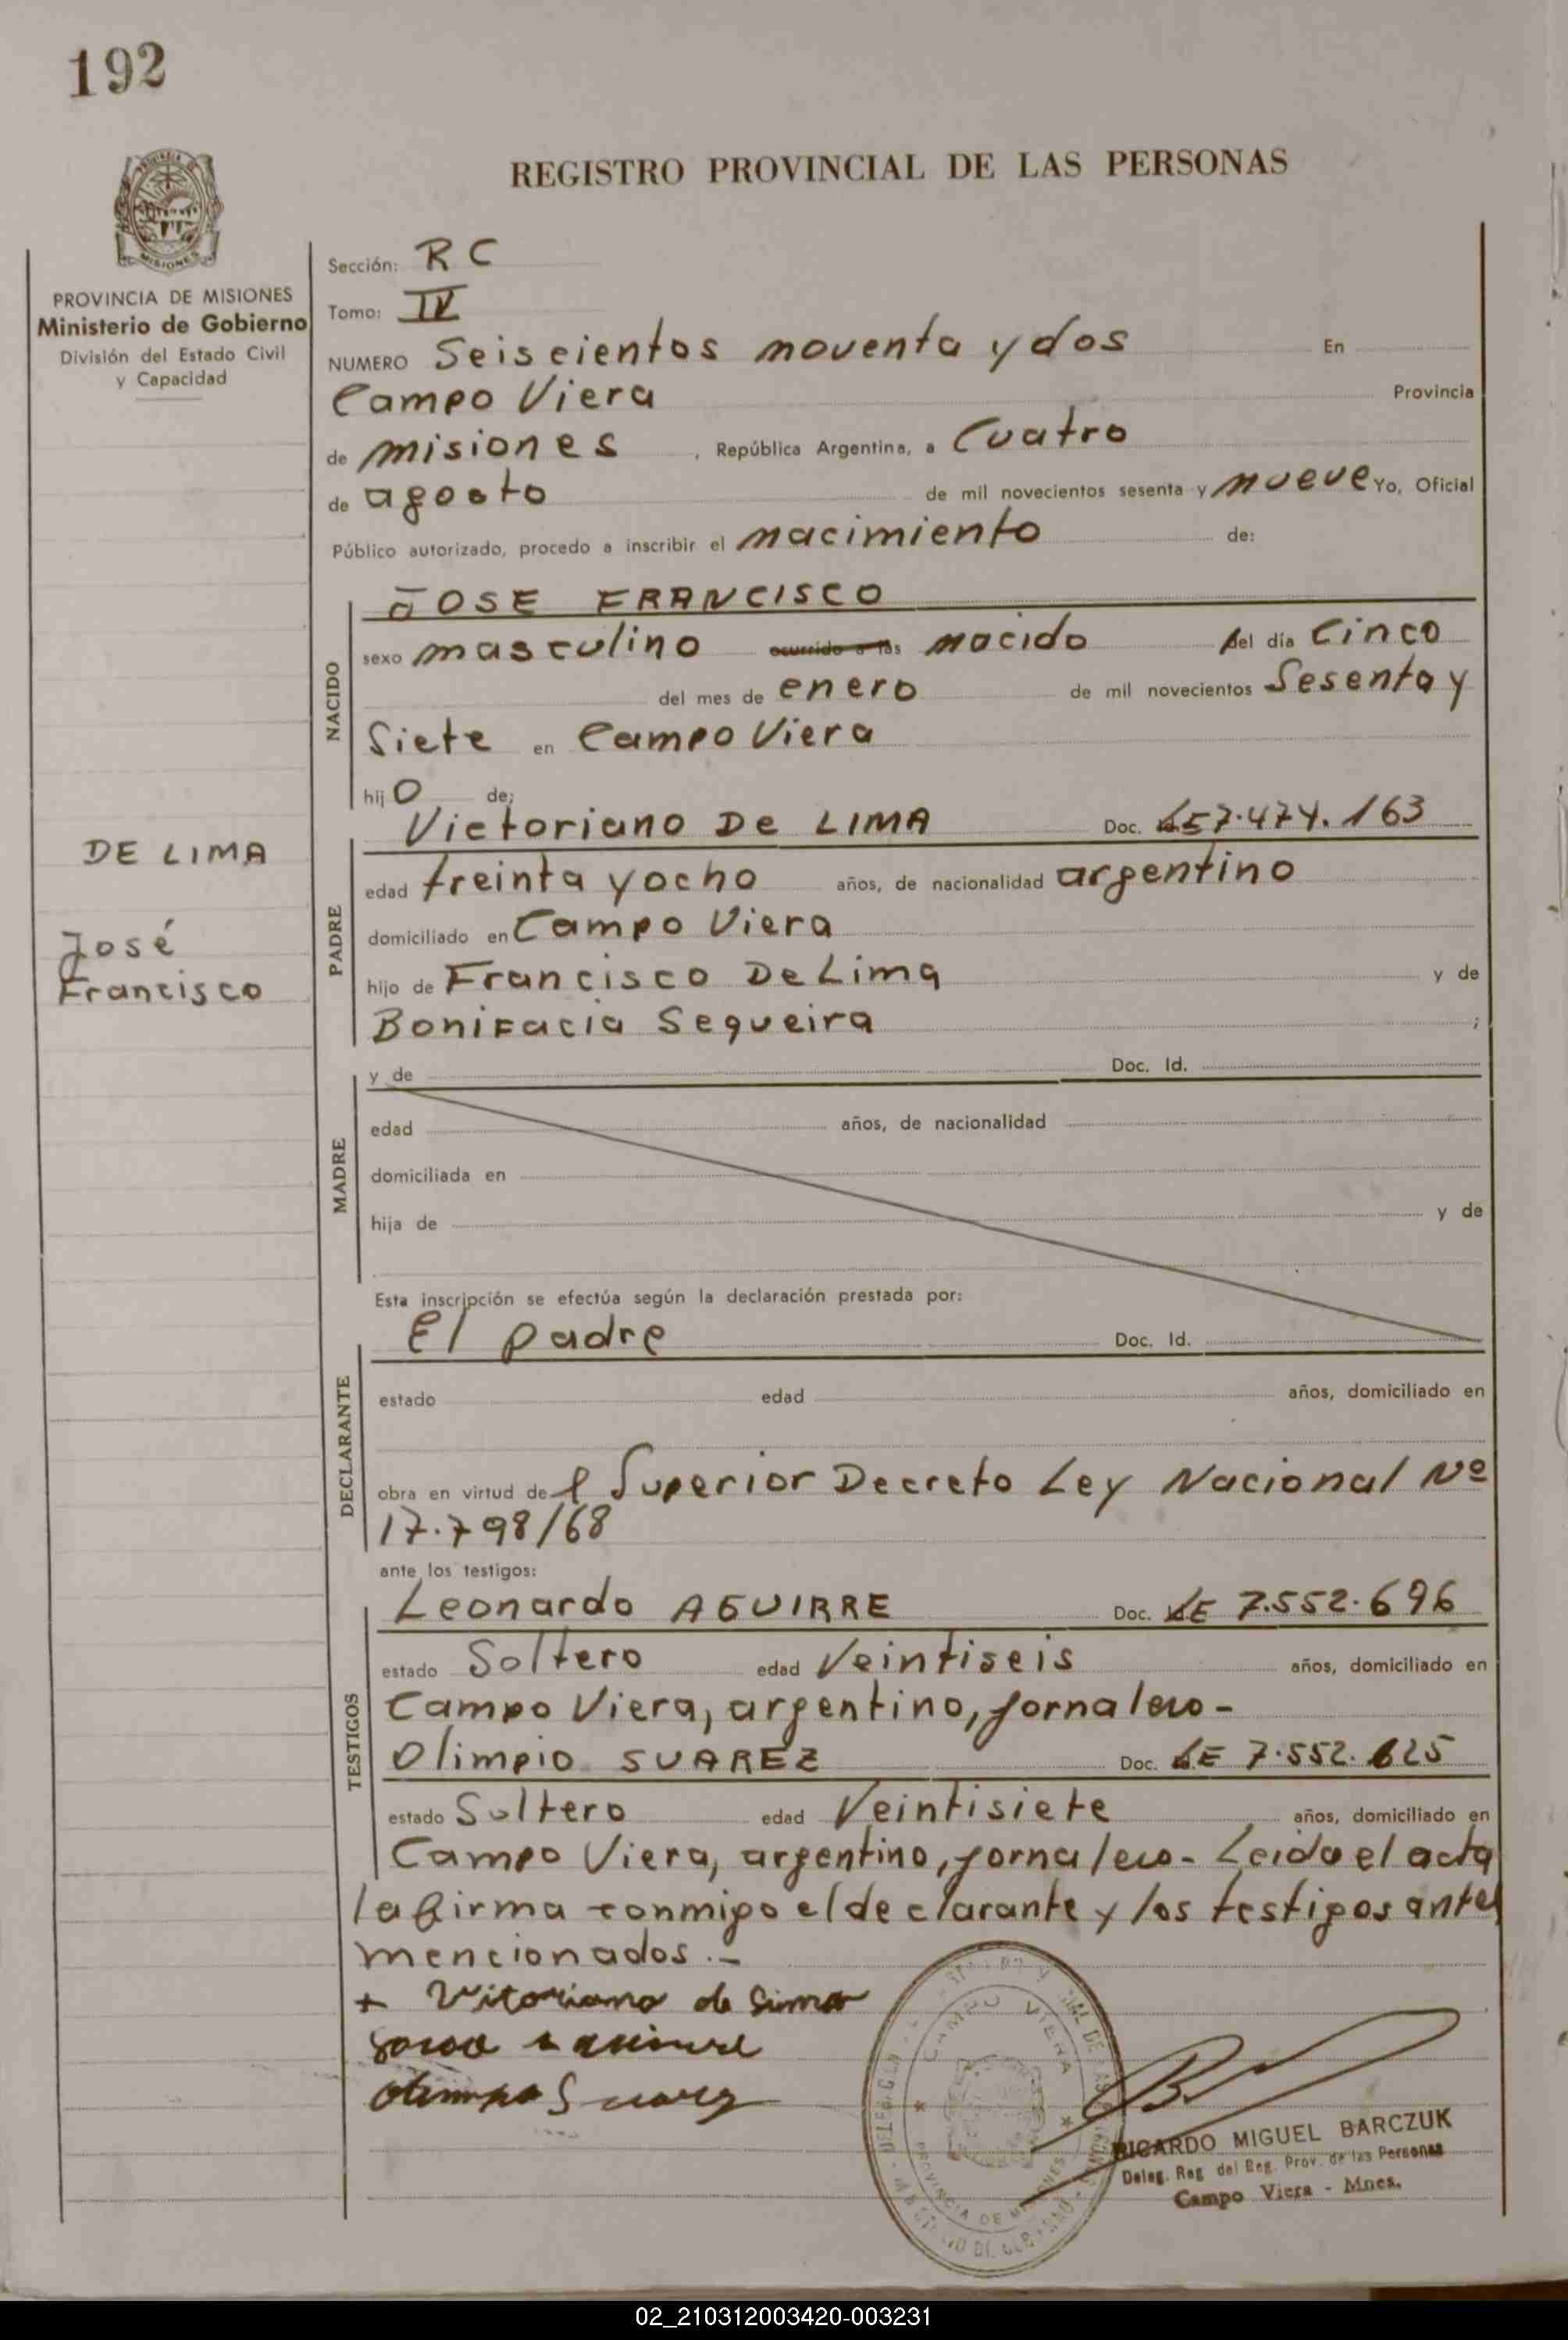 192
REGISTRO PROVINCIAL DE LAS PERSONAS
PROVINCIA DE MISIONES
Ministerio de Gobierno
División del Estado Civil
y Capacidad
DE LIMA
José
Francisco
Sección: R C
Tomo: IV
NUMERO Seiscientos noventa y dos En
Campo Viera Provincia
de misiones, República Argentina, a Cuatro
de agosto de mil novecientos sesenta y nueve Yo, Oficial
Público autorizado, procedo a inscribir el nacimiento de:
NACIDO
JOSE FRANCISCO
sexo masculino ocurrido a las nacido del día Cinco
del mes de enero de mil novecientos Sesenta y
Siete en Campo Viera
hijo de;
PADRE
Victoriano De LIMA Doc. LE 7.474.163
edad treinta y ocho años, de nacionalidad argentino
domiciliado en Campo Viera
hijo de Francisco De Lima y de
Bonifacia Sequeira ;
MADRE
y de Doc. Id.
edad años, de nacionalidad
domiciliada en
hija de y de
Esta inscripción se efectúa según la declaración prestada por:
DECLARANTE
El padre Doc. Id.
estado edad años, domiciliado en
obra en virtud del Superior Decreto Ley Nacional Nº
17.798/68
ante los testigos:
TESTIGOS
Leonardo AGUIRRE Doc. LE 7.552.696
estado Soltero edad Veintiseis años, domiciliado en
Campo Viera, argentino, jornalero-
Olimpio SUAREZ Doc. LE 7.552.625
estado Soltero edad Veintisiete años, domiciliado en
Campo Viera, argentino, jornalero- Leida el acta
la firma conmigo el declarante y los testigos antes
mencionados.-
+ Vitoriano de Lima
Olimpio Suarez
CAMPO VIERA
PROVINCIA DE MISIONES
RICARDO MIGUEL BARCZUK
Deleg. Reg. del Reg. Prov. de las Personas
Campo Viera - Mnes.
02_210312003420-003231